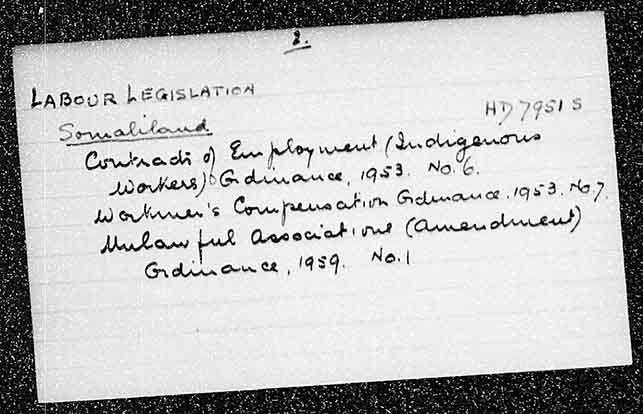 2.
LABOUR LEGISLATION
HD 7951 S
Somaliland
Contracts of Employment (Indigenous
Workers) Ordinance, 1953. No. 6.
Workmen's Compensation Ordinance. 1953. No. 7.
Unlawful Associations (Amendment)
Ordinance, 1959. No. 1